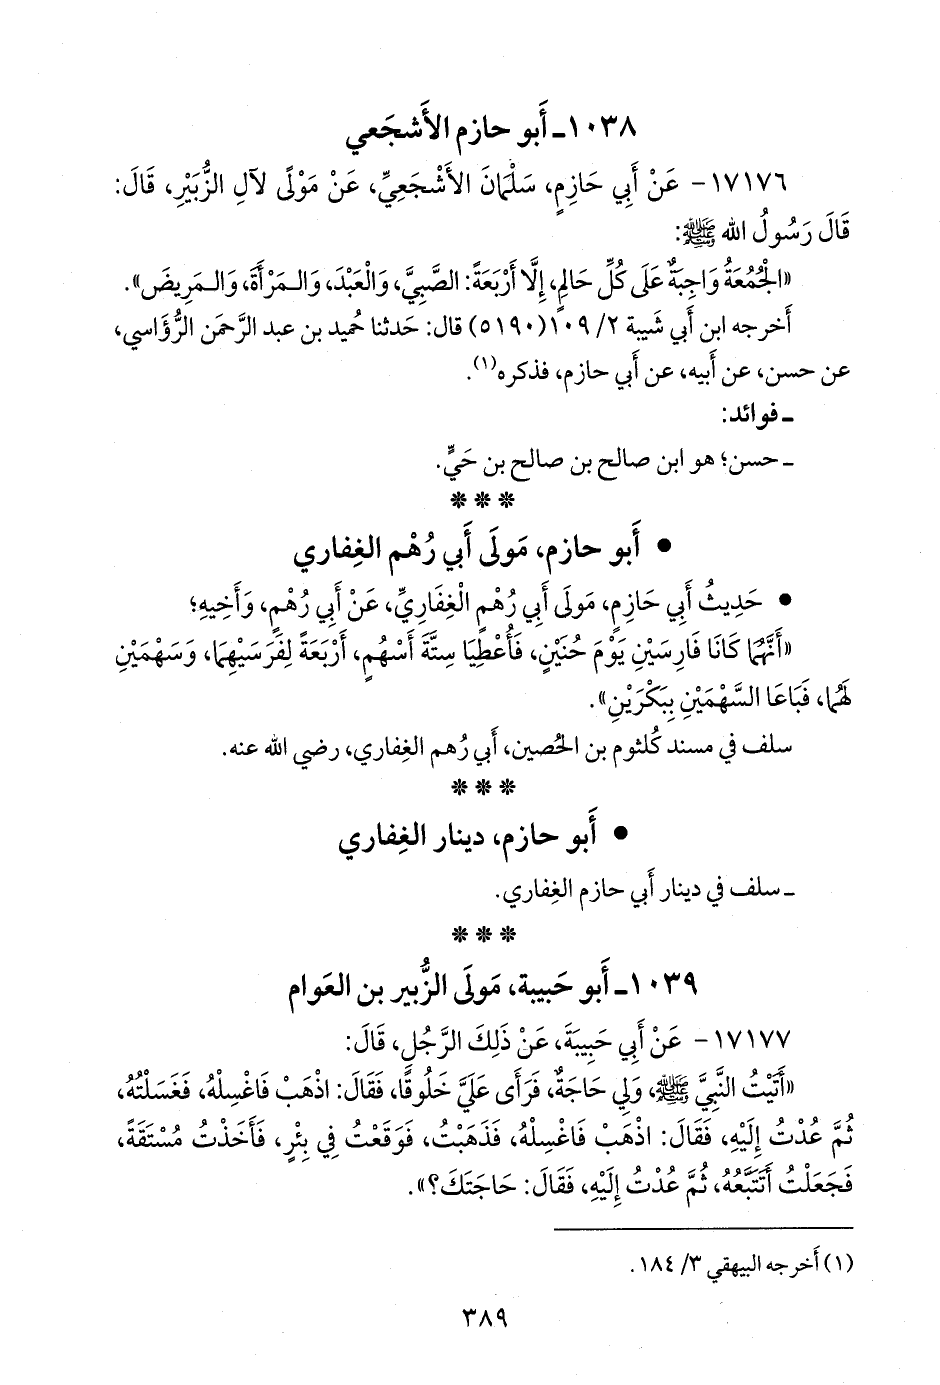 ١٠٣٨ـ أَبو حازم الأَشجَعي
١٧١٧٦- عَنْ أَبِي حَازِمٍ، سَلْمَانَ الأَشْجَعِيِّ، عَنْ مَوْلًى لآلِ الزُّبَيْرِ، قَالَ:
قَالَ رَسُولُ الله ﷺ:
«الْجُمُعَةُ وَاجِبَةٌ عَلَى كُلِّ حَالِمٍ، إِلَّا أَرْبَعَةً: الصَّبِيَّ، وَالْعَبْدَ، وَالـمَرْأَةَ، وَالـمَرِيضَ».
أَخرجه ابن أَبي شَيبة ٢/ ١٠٩(٥١٩٠) قال: حَدثنا حُميد بن عبد الرَّحمَن الرُّؤَاسي،
عن حسن، عن أَبيه، عن أَبي حازم، فذكره(١).
ـ فوائد:
ـ حسن؛ هو ابن صالح بن صالح بن حَيٍّ.
* * *
• أَبو حازم، مَولَى أَبي رُهْم الغِفاري
• حَدِيثُ أَبِي حَازِمٍ، مَوْلَى أَبِي رُهْمٍ الْغِفَارِيِّ، عَنْ أَبِي رُهْمٍ، وَأَخِيهِ؛
«أَنَّهُمَا كَانَا فَارِسَيْنِ يَوْمَ حُنَيْنٍ، فَأُعْطِيَا سِتَّةَ أَسْهُمٍ، أَرْبَعَةً لِفَرَسَيْهِمَا، وَسَهْمَيْنِ
لَهُمَا، فَبَاعَا السَّهْمَيْنِ بِبَكْرَيْنِ».
سلف في مسند كُلثوم بن الحُصين، أَبي رُهم الغِفاري، رضي الله عنه.
* * *
• أَبو حازم، دينار الغِفاري
ـ سلف في دينار أَبي حازم الغِفاري.
* * *
١٠٣٩ـ أَبو حَبيبة، مَولَى الزُّبير بن العَوام
١٧١٧٧- عَنْ أَبِي حَبِيبَةَ، عَنْ ذَلِكَ الرَّجُلِ، قَالَ:
«أَتَيْتُ النَّبِيَّ ﷺ، وَلِي حَاجَةٌ، فَرَأَى عَلَيَّ خَلُوقًا، فَقَالَ: اذْهَبْ فَاغْسِلْهُ، فَغَسَلْتُهُ،
ثُمَّ عُدْتُ إِلَيْهِ، فَقَالَ: اذْهَبْ فَاغْسِلْهُ، فَذَهَبْتُ، فَوَقَعْتُ فِي بِئْرٍ، فَأَخَذْتُ مُسْتَقَةً،
فَجَعَلْتُ أَتَتَبَّعُهُ، ثُمَّ عُدْتُ إِلَيْهِ، فَقَالَ: حَاجَتَكَ؟».
(١) أَخرجه البيهقي ٣/ ١٨٤.
٣٨٩